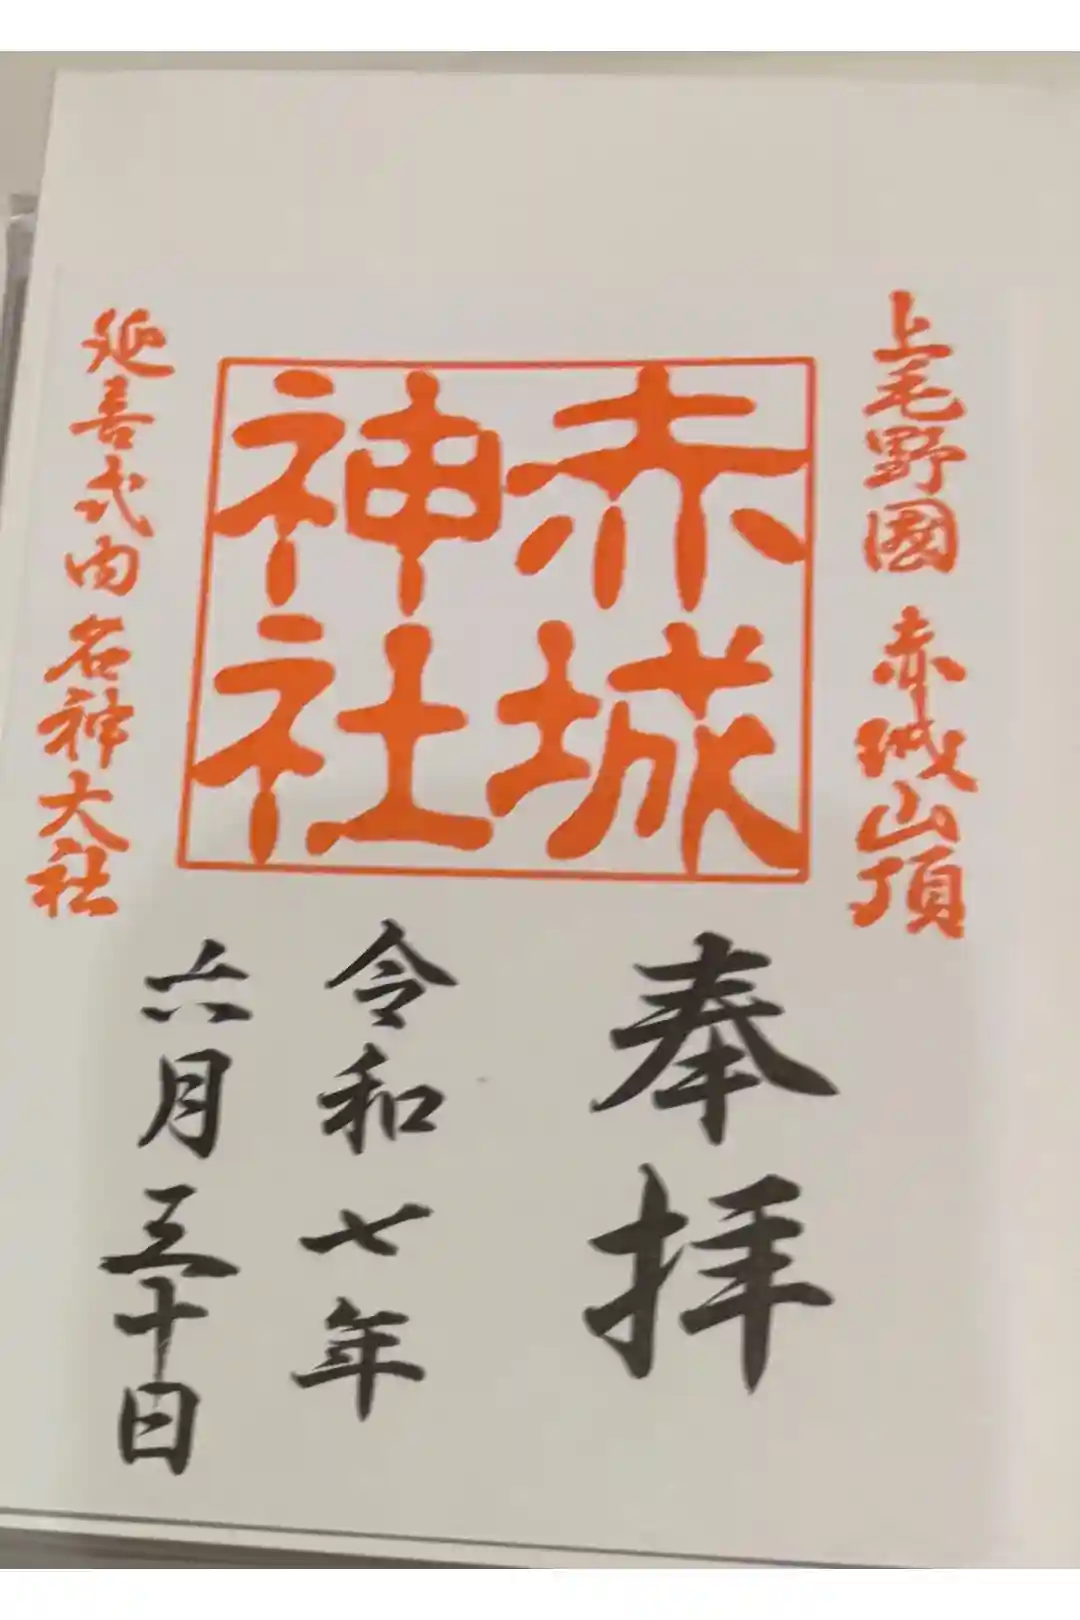 上毛野國 赤城山頂
赤城
神社
延喜式内 名神大社
奉拝
令和七年
六月三十日